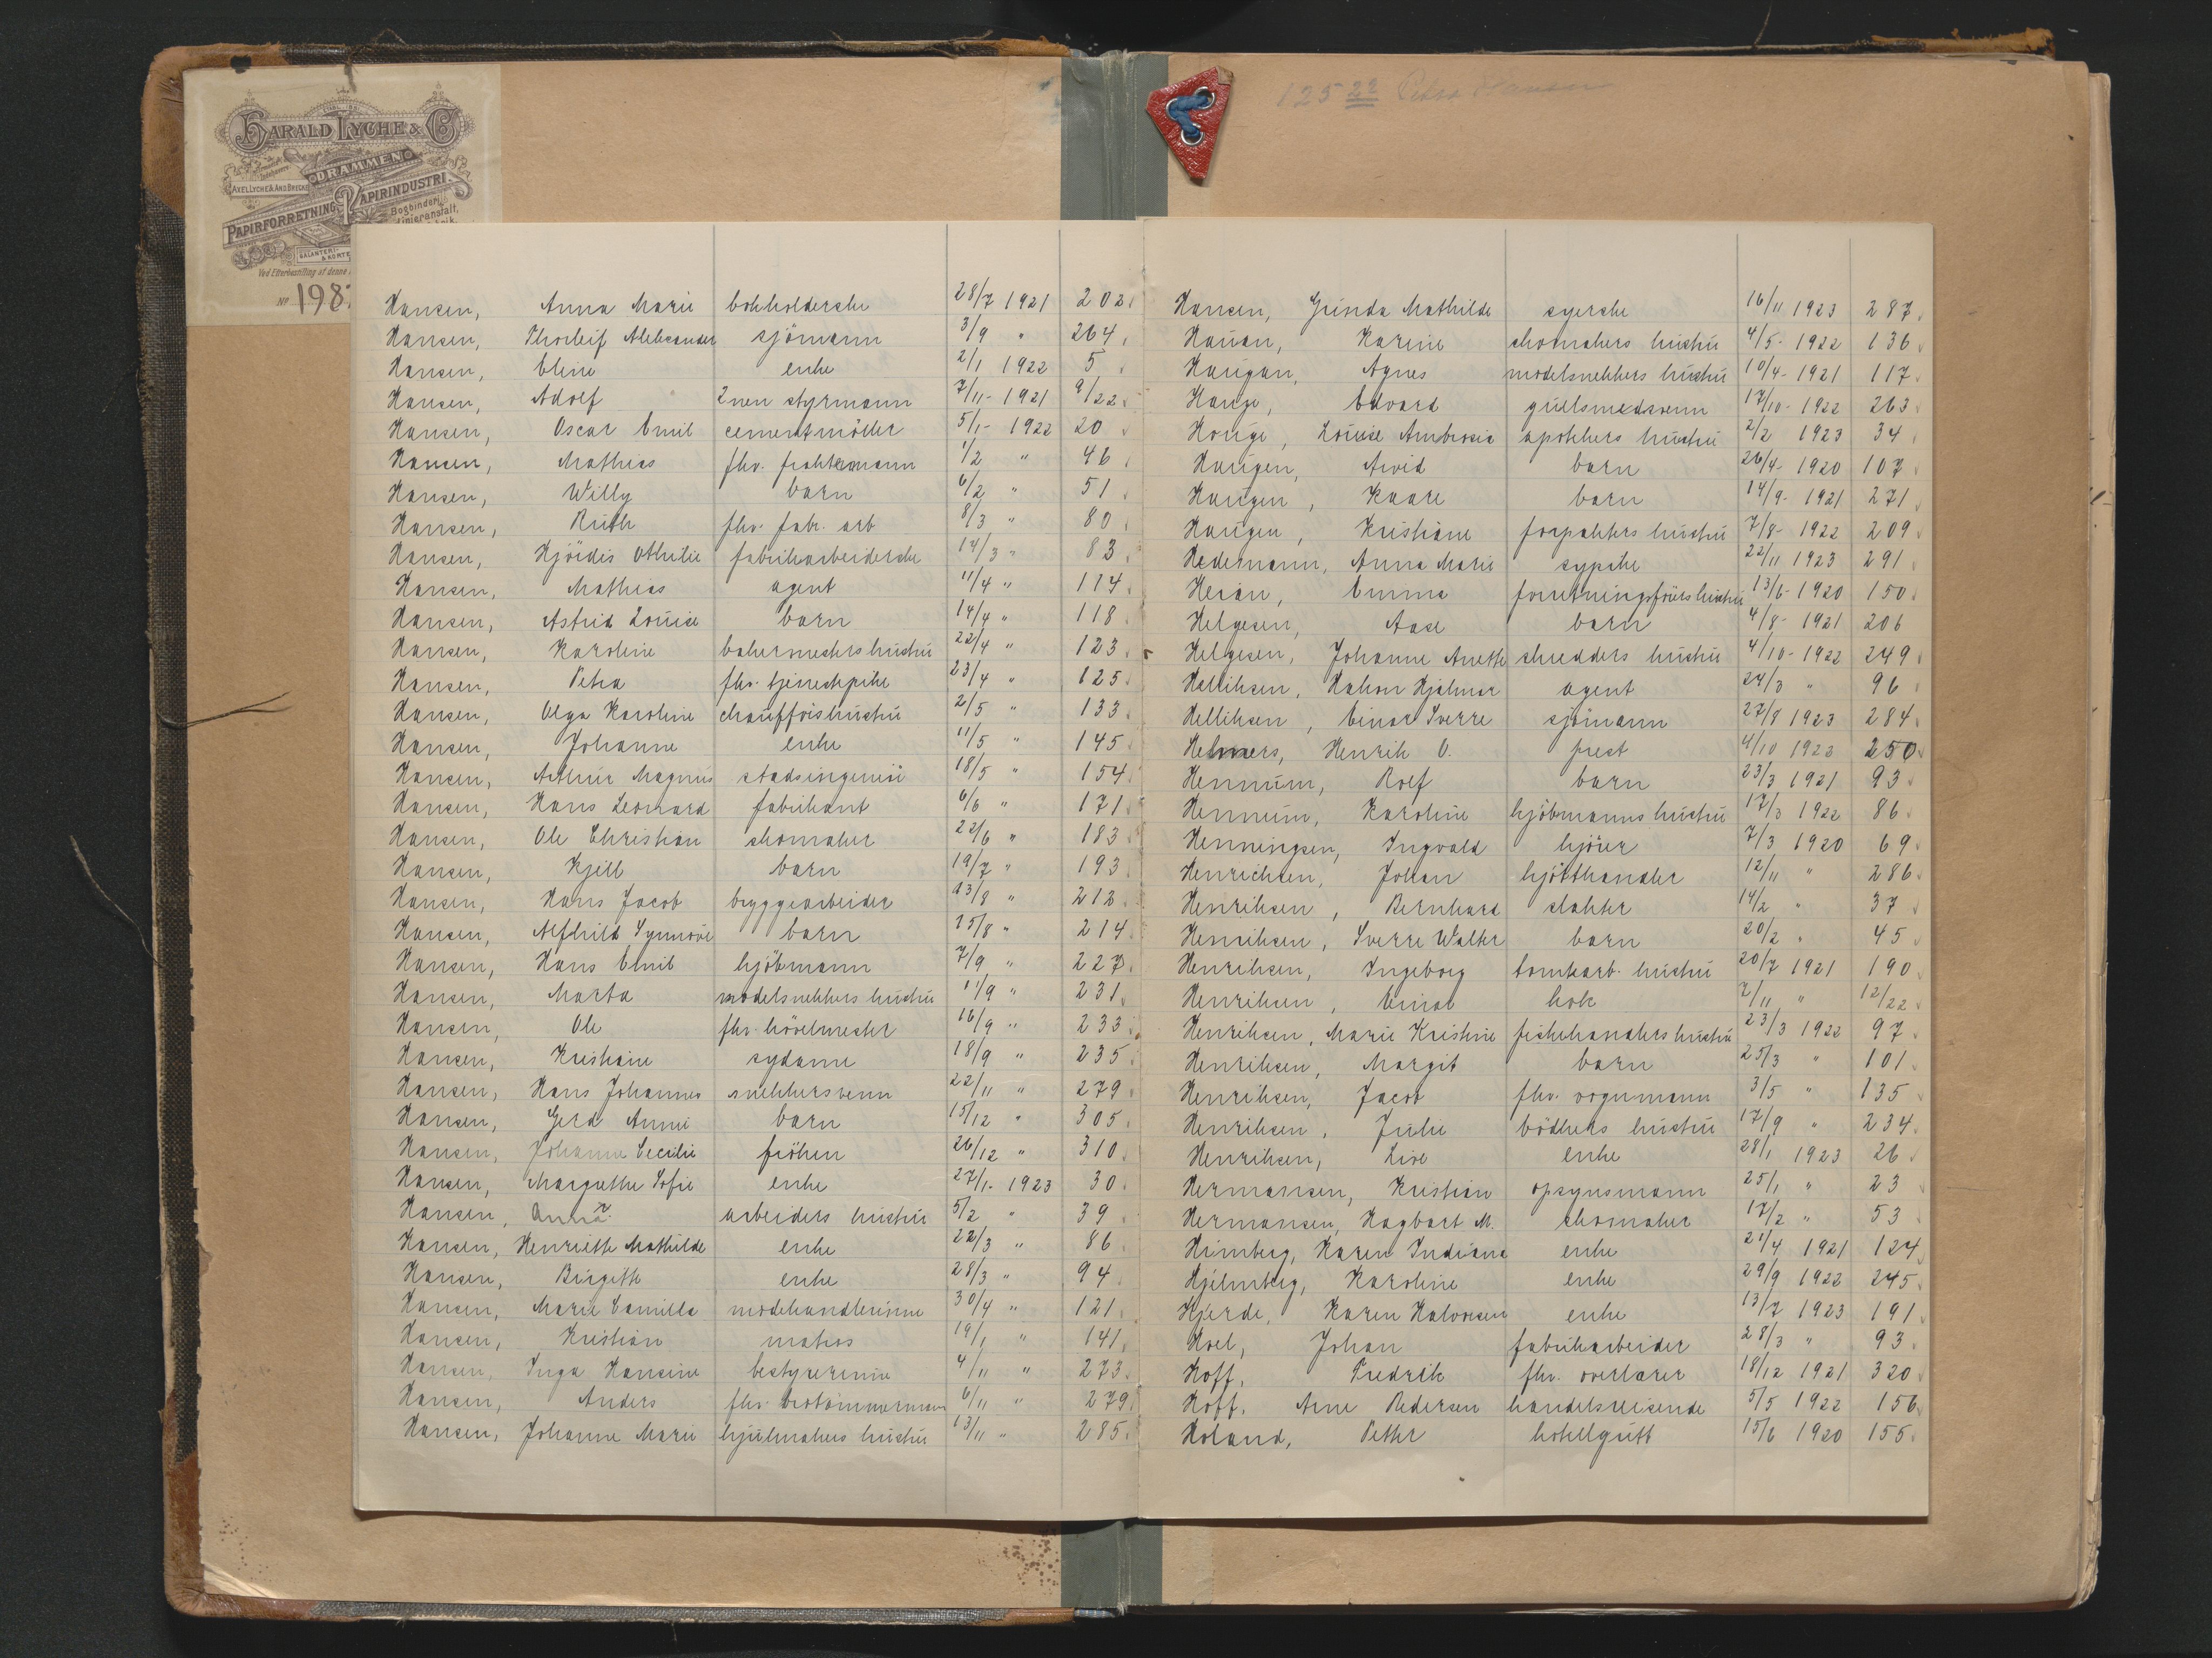 HARALD LYCHE & Co
DRAMMEN
PAPIRFORRETNING PAPIRINDUSTRI.
Bogbinderi,
Linieranstalt,
Ved Efterbestilling af denne
No 198
125 22 Petra Hansen
Hansen, Anna Marie bokholderske 28/7 1921 202
Hansen, Thorleif Aleksander sjömann 3/9 " 264
Hansen, Eline enke 2/1 1922 5
Hansen, Adolf 2nen styrmann 7/11- 1921 9/22
Hansen, Oscar Emil cementmöller 5/1- 1922 20
Hansen, Mathias fhv. fraktemann 1/2 " 46
Hansen, Willy barn 6/2 " 51
Hansen, Ruth fhv. fabr. arb 8/3 " 80
Hansen, Hjördis Othilie fabrikarbeiderske 14/3 " 83
Hansen, Mathias agent 11/4 " 114
Hansen, Astrid Louise barn 14/4 " 118
Hansen, Karoline bakermesters hustru 22/4 " 123
Hansen, Petra fhv. tjenestpike 23/4 " 125
Hansen, Olga Karoline chaufförs hustru 2/5 " 133
Hansen, Johanne enke 11/5 " 145
Hansen, Arthur Magnus stadsingeniör 18/5 " 154
Hansen, Hans Leonard fabrikant 6/6 " 171
Hansen, Ole Christian skomaker 22/6 " 183
Hansen, Kjell barn 19/7 " 193
Hansen, Hans Jacob bryggearbeider 13/8 " 212
Hansen, Alfhild Synnöve barn 15/8 " 214
Hansen, Hans Emil kjöbmann 7/9 " 227
Hansen, Marta modelsnekkers hustru 11/9 " 231
Hansen, Ole fhv. hövelmester 16/9 " 233
Hansen, Kristiane sydame 18/9 " 235
Hansen, Hans Johannes snekkersvenn 22/11 " 279
Hansen, Gerd Annie barn 15/12 " 305
Hansen, Johanne Cecilie fröken 26/12 " 310
Hansen, Margrethe Sofie enke 27/1- 1923 30
Hansen, Anna arbeiders hustru 5/2 " 39
Hansen, Henriette Mathilde enke 22/3 " 86
Hansen, Birgitte enke 28/3 " 94
Hansen, Marie Camilla modehandlerinne 30/4 " 121
Hansen, Kristian matros 19/1 " 141
Hansen, Inga Hansine bestyrerinne 4/11 " 273
Hansen, Anders fhv. brotömmermann 6/11 " 279
Hansen, Johanne Marie hjulmakers hustru 13/11 " 285
Hansen, Gunda Mathilde syerske 16/11 1923 287
Hauan, Karine skomakers hustru 4/5- 1922 136
Haugan, Agnes modelsnekkers hustru 10/4- 1921 117
Hauge, Edvard gullsmedsvenn 17/10- 1922 263
Hauge, Louise Ambrosia apothkers hustru 2/2 1923 34
Haugen, Arvid barn 26/4- 1920 107
Haugen, Kaare barn 14/9- 1921 271
Haugen, Kristiane forpakters hustru 7/8- 1922 209
Hedemann, Anna Marie sypike 22/11 1923 291
Heian, Emma forretningsförers hustru 13/6- 1920 150
Helgesen, Aase barn 4/8- 1921 206
Helgesen, Johanne Anette skredders hustru 4/10- 1922 249
Helliksen, Hakon Hjalmar agent 24/3 " 96
Helliksen, Einar Sverre sjömann 27/8 1923 284
Helmers, Henrik O. prest 4/10 1923 250
Hennum, Rolf barn 23/3 1921 93
Hennum, Karoline kjöbmanns hustru 17/3 1922 86
Henningsen, Ingvald kjörer 7/3 1920 69
Henrichsen, Johan kjötthandler 12/11 " 286
Henriksen, Bernhard slakter 14/2 " 37
Henriksen, Sverre Walter barn 20/2 " 45
Henriksen, Ingeborg tomtearb. hustru 20/7 1921 190
Henriksen, Einar kok 7/11 " 12/22
Henriksen, Marie Kristine fiskehandlers hustru 23/3 1922 97
Henriksen, Margit barn 25/3 " 101
Henriksen, Jacob fhv. vognmann 3/5 " 135
Henriksen, Julie bödkers hustru 17/9 " 234
Henriksen, Live enke 28/1 1923 26
Hermansen, Kristian opsynsmann 25/1 " 23
Hermansen, Hagbart M. skomaker 17/2 " 53
Himberg, Karen Indiana enke 21/4 1921 124
Hjelmberg, Karoline enke 29/9 1922 245
Hjerde, Karen Halvorsen enke 13/7 1923 191
Hoel, Johan fabrikarbeider 28/3 " 93
Hoff, Fredrik fhv. overlærer 18/12 1921 320
Hoff, Arne Pedersen handelsreisende 5/5 1922 156
Holand, Petter hotellgutt 15/6 1920 155